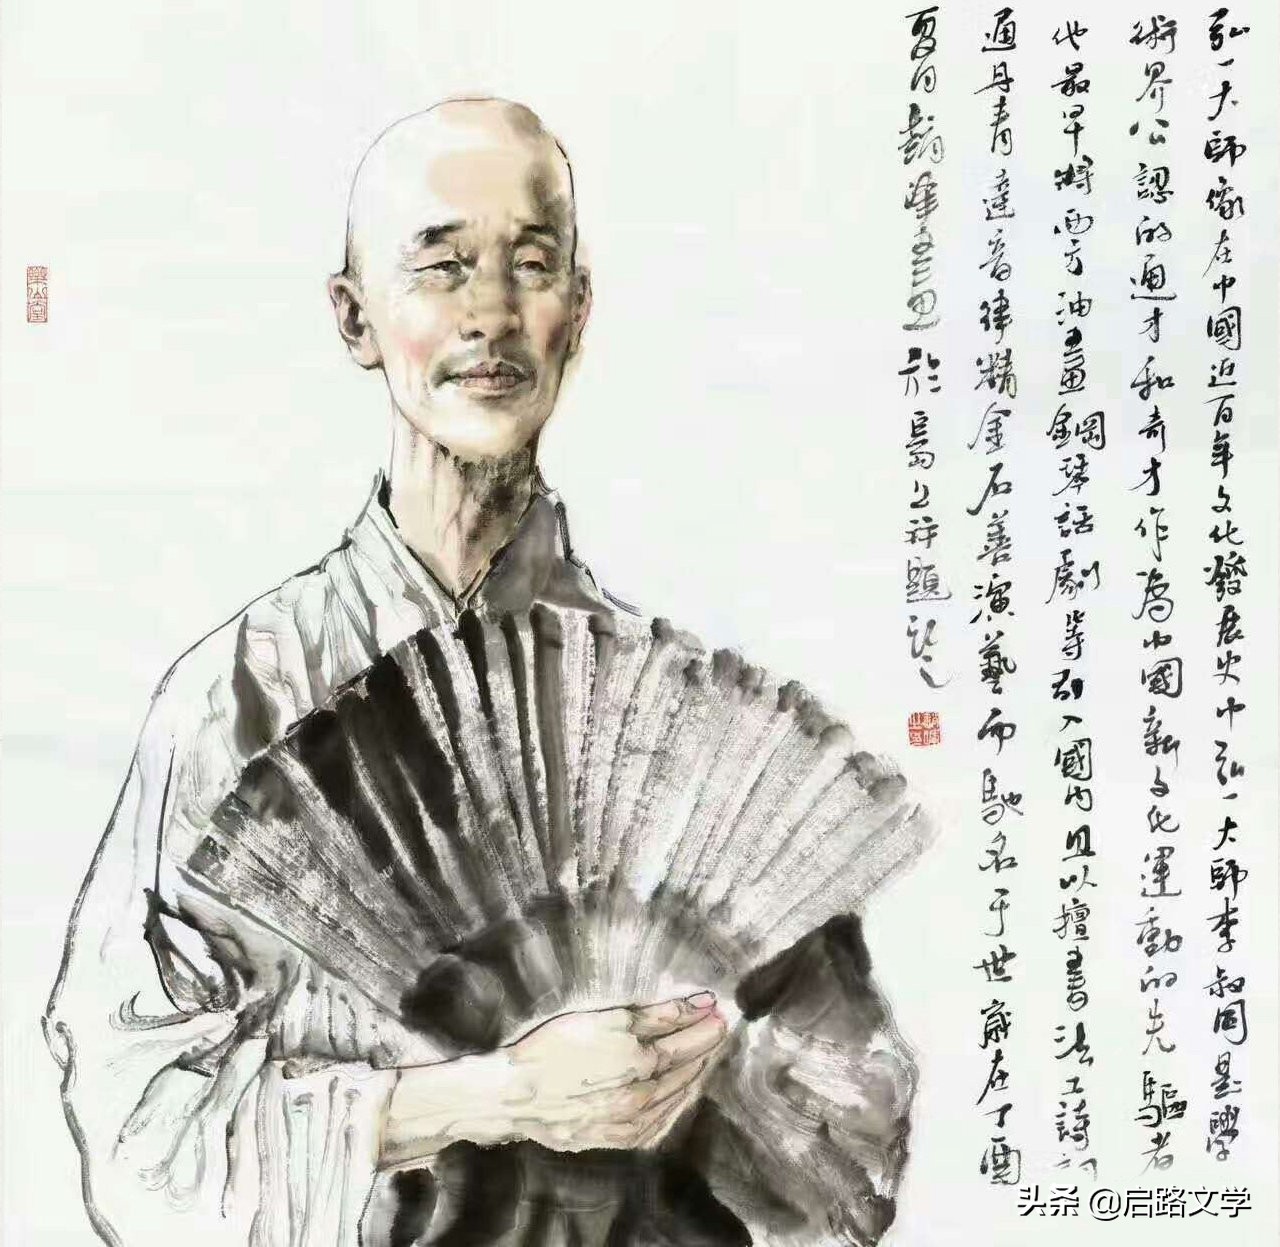 弘一大師像在中國近百年文化發展史中弘一大師李叔同是學
術界公認的通才和奇才作為中國新文化運動的先驅者
他最早將西方油畫鋼琴話劇等引入國內且以擅書法工詩詞
通丹青達音律精金石善演藝而馳名于世歲在丁酉
夏月 於島上 題記之
头条 @启路文学